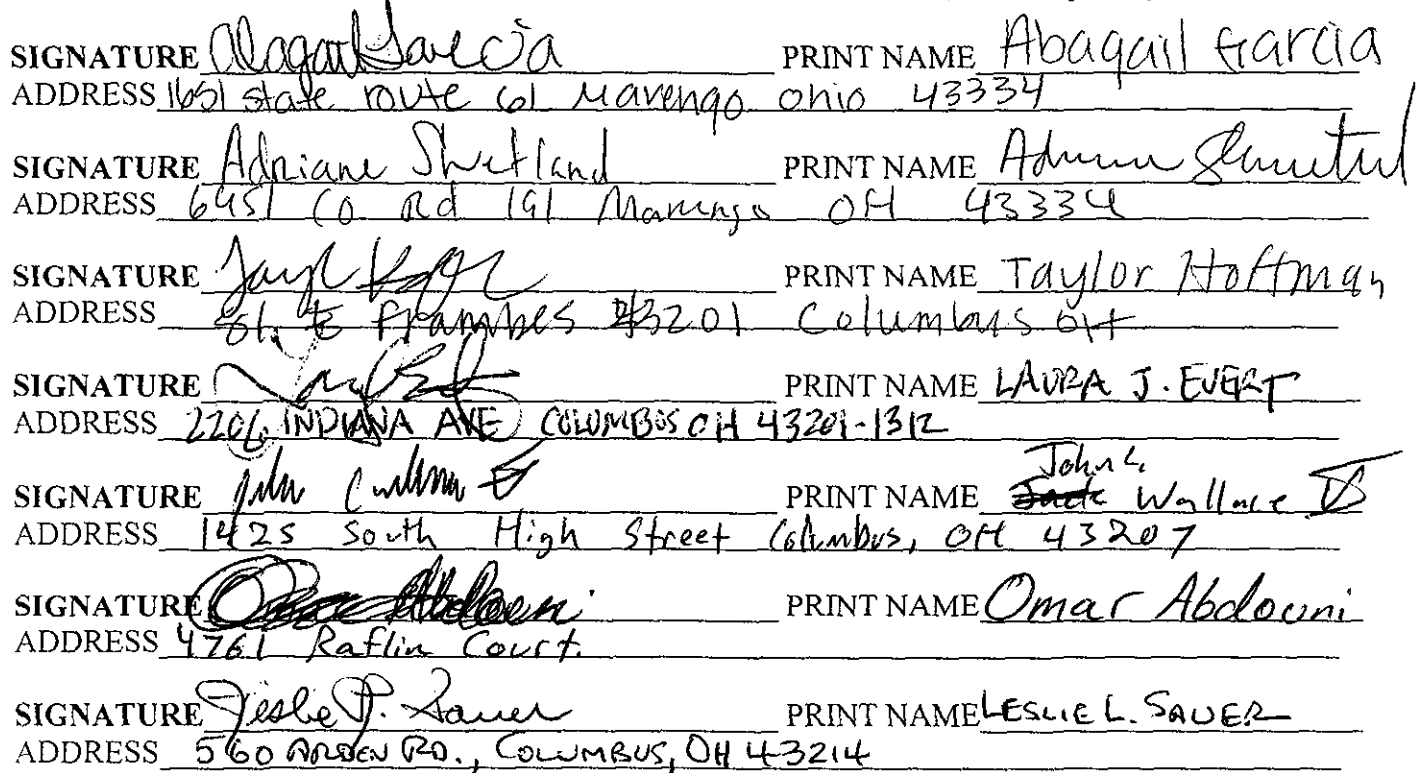 SIGNATURE Garcia PRINT NAME Abagail Garcia
ADDRESS 1651 state route 61 Marengo ohio 43334
SIGNATURE Adriane Shetland PRINT NAME
ADDRESS 6451 Co Rd 191 Marengo OH 43334
SIGNATURE PRINT NAME Taylor Hoffman
ADDRESS 81 E Frambes 43201 Columbus OH
SIGNATURE PRINT NAME LAURA J. EVERT
ADDRESS 2206 INDIANA AVE COLUMBUS OH 43201-1312
John L.
SIGNATURE John PRINT NAME Wallace
ADDRESS 1425 South High Street Columbus, OH 43207
SIGNATURE Omar Abdouni PRINT NAME Omar Abdouni
ADDRESS 4761 Raflin Court.
SIGNATURE Leslie L. Sauer PRINT NAME LESLIE L. SAUER
ADDRESS 560 ARDEN RD., COLUMBUS, OH 43214